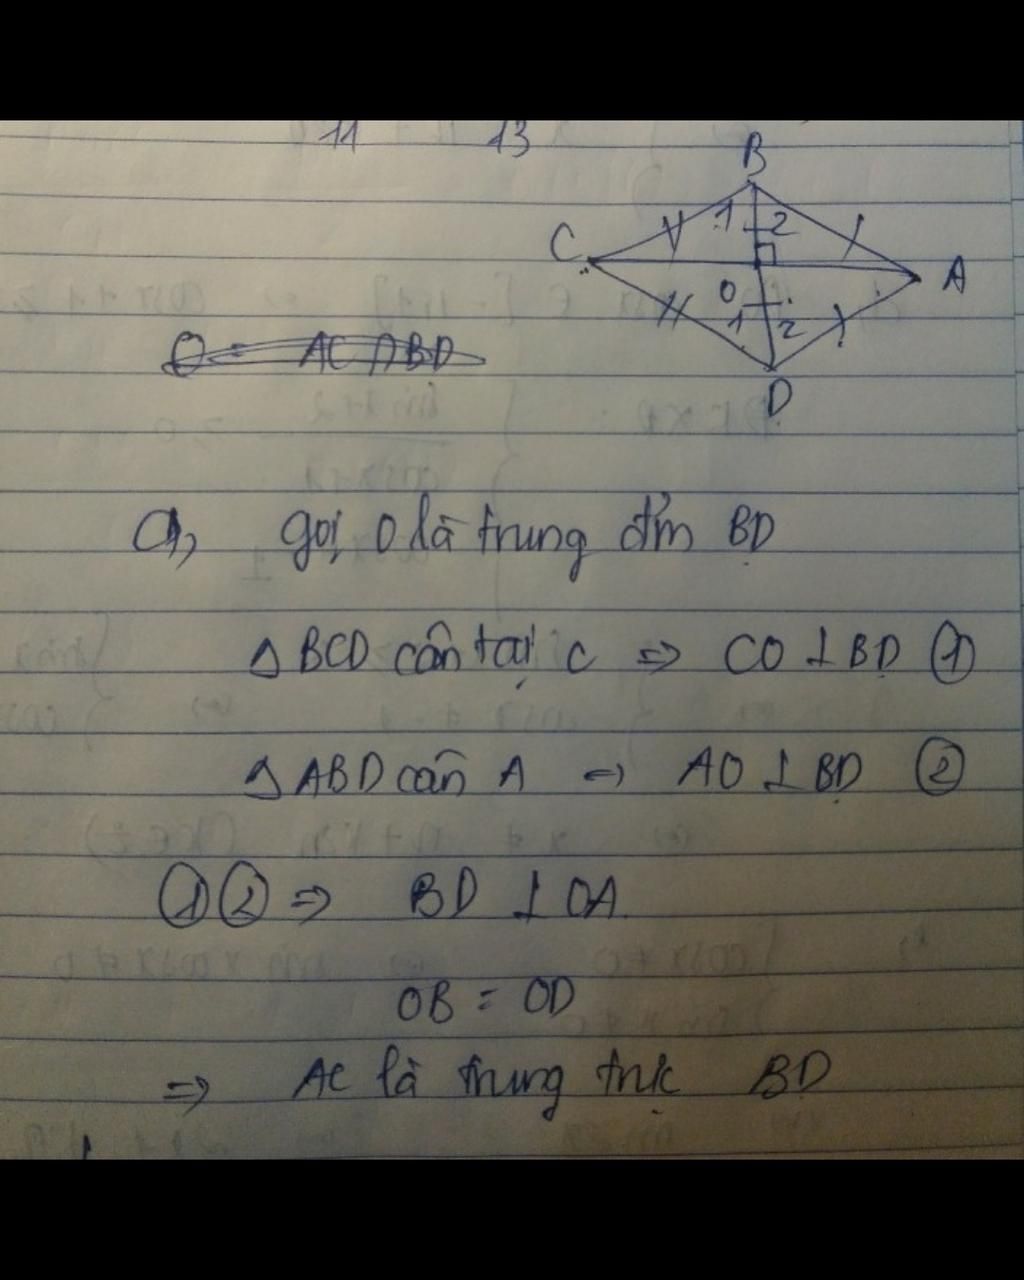 11 13
B
C 1 2
A
O
1 2
O = AC ∩ BD
D
a, gọi O là trung đ'm BD
Δ BCD cân tại C => CO ⊥ BD ①
Δ ABD cân A => AO ⊥ BD ②
① ② => BD ⊥ OA
OB = OD
=> AC là trung trực BD